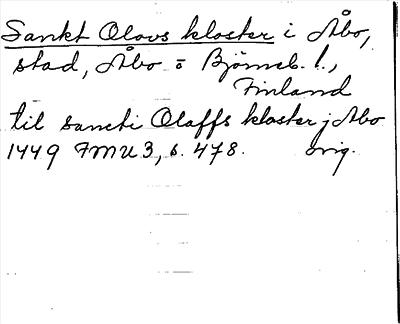 Sankt Olovs kloster i Åbo,
stad, Åbo o Björneb. l.,
Finland
til sancti Olaffs kloster j Abo
1449 FMU 3, s. 478. orig.